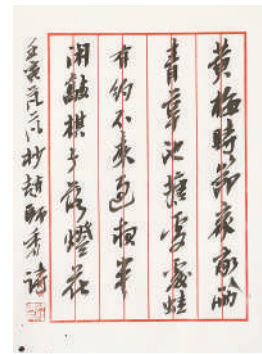 黄梅時節家家雨
青草池塘處處蛙
有約不來過夜半
閑敲棋子落燈花
壬寅范一一抄趙師秀詩